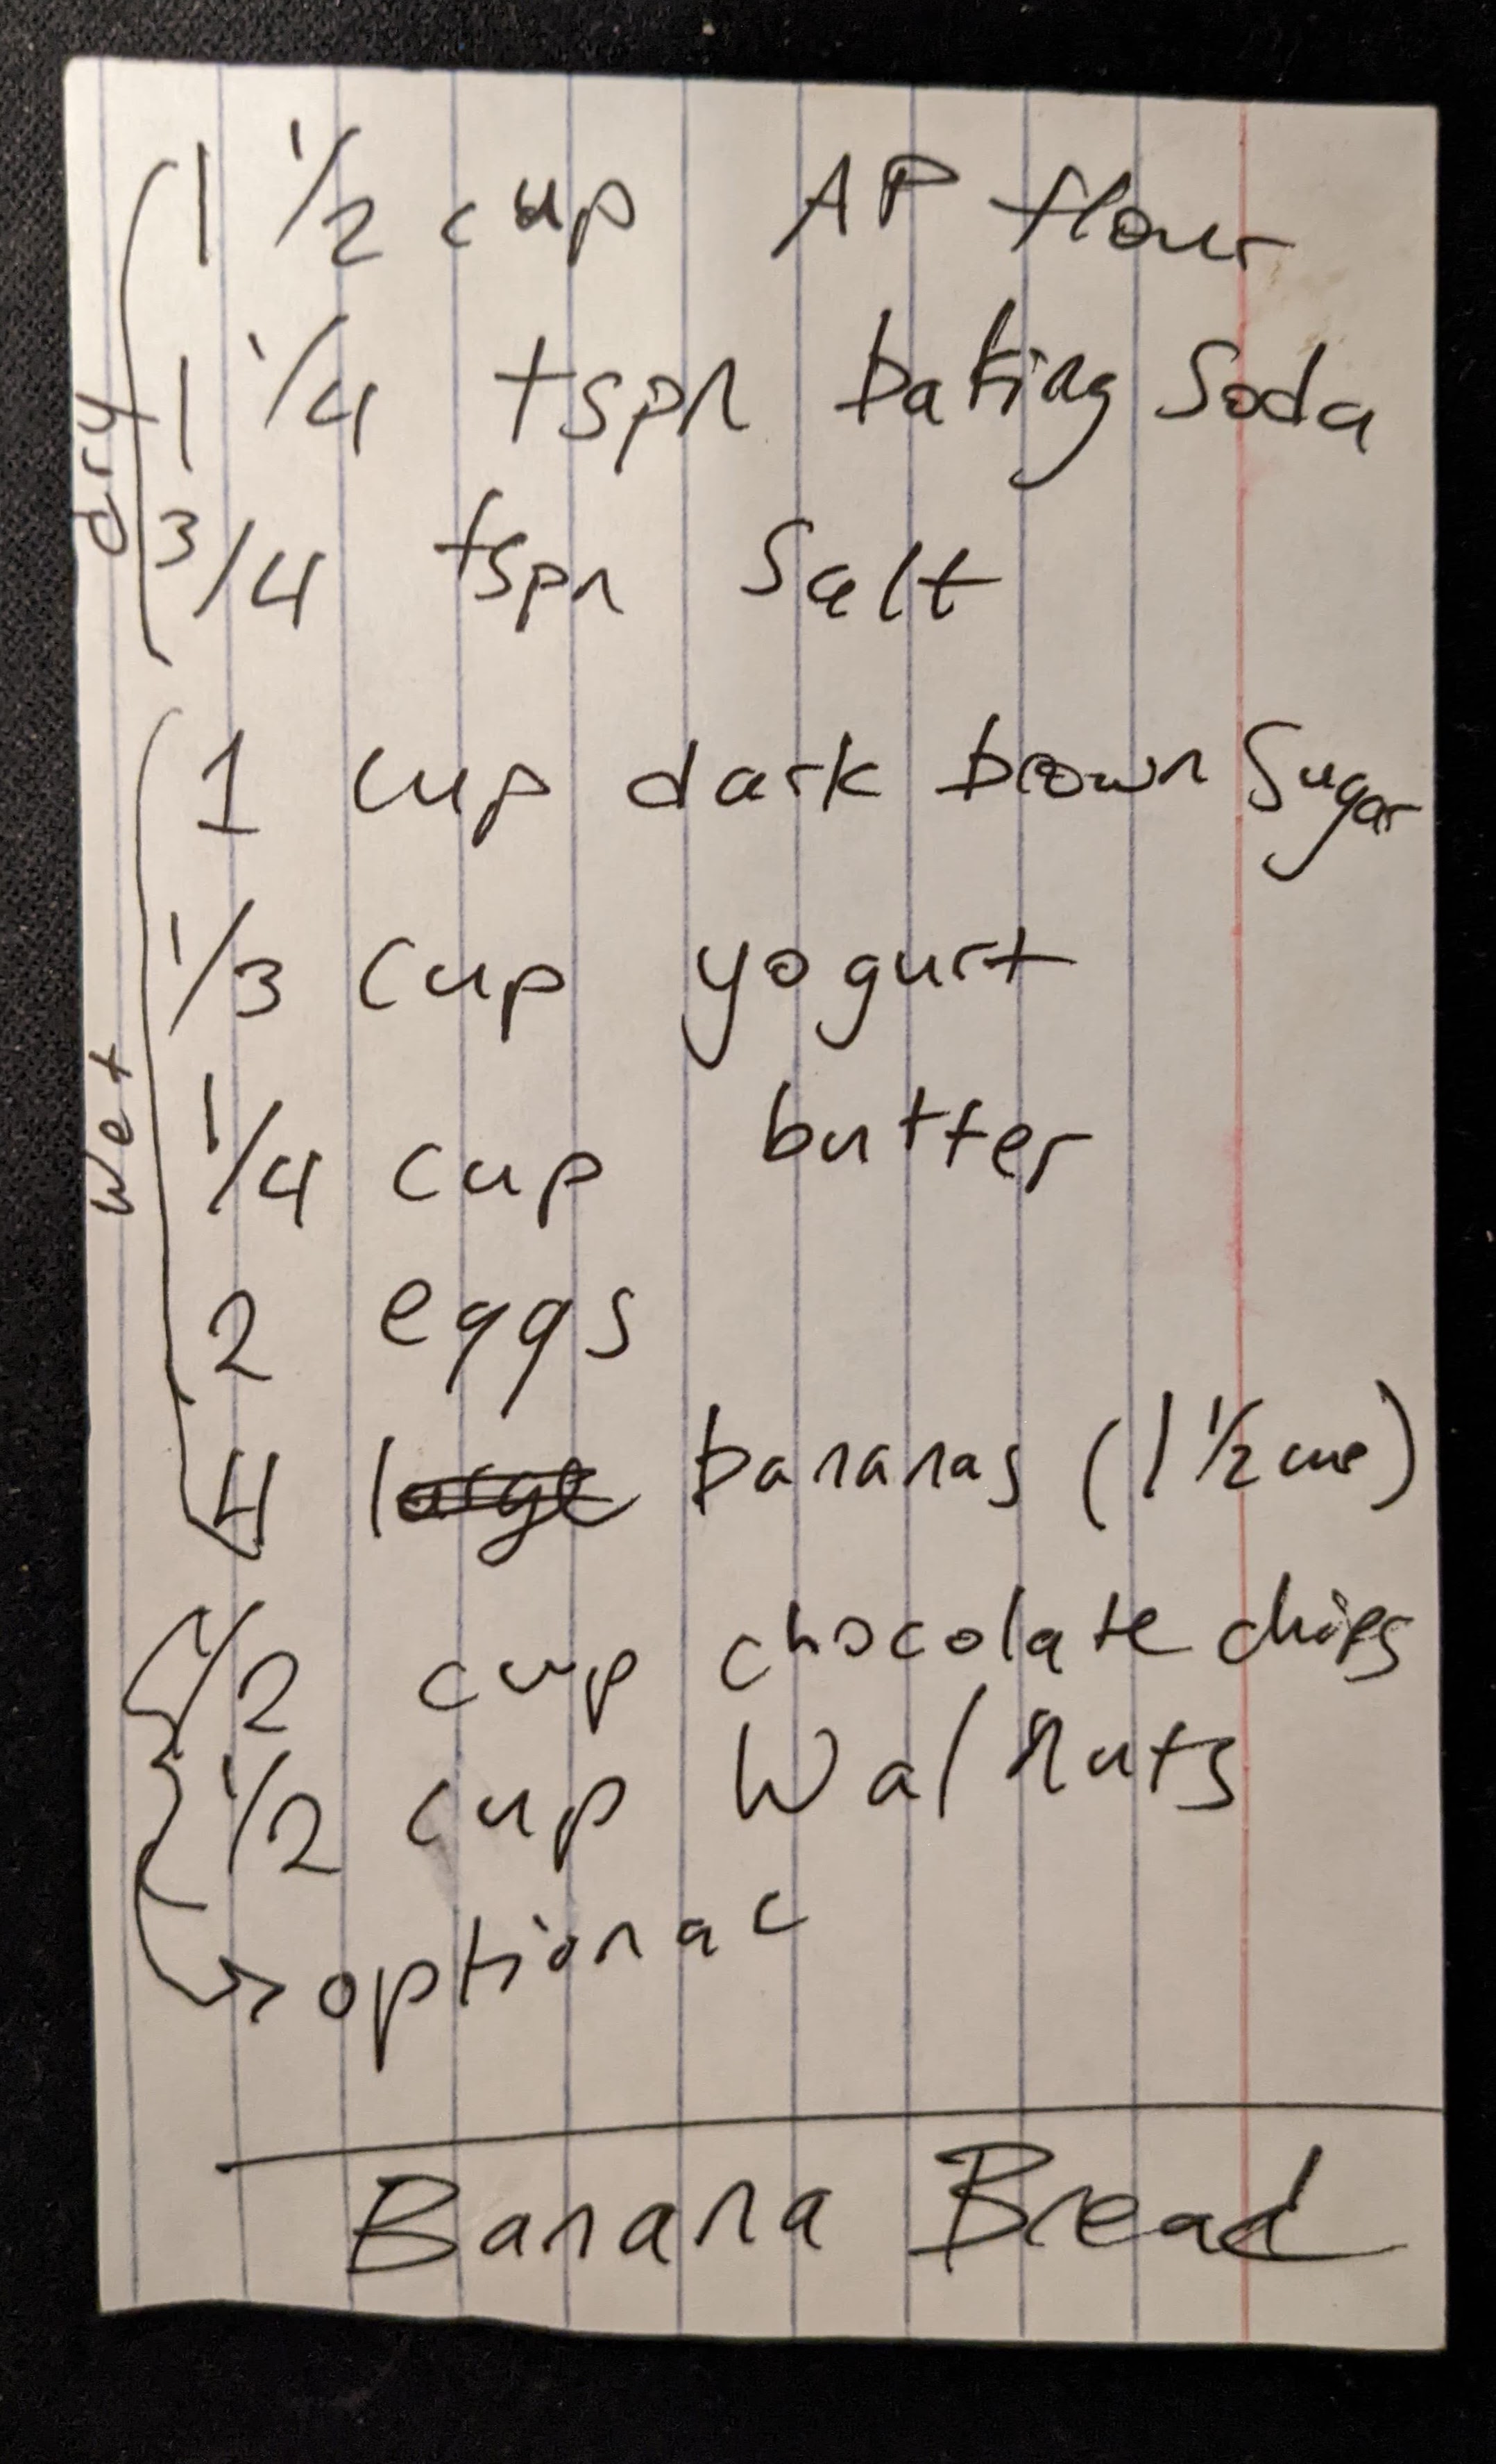 dry
1 1/2 cup AP flour
1 1/4 tspn baking Soda
3/4 tspn Salt
wet
1 cup dark brown Sugar
1/3 cup yogurt
1/4 cup butter
2 eggs
4 large bananas (1 1/2 cup)
1/2 cup chocolate chips
1/2 cup Walnuts
optional
Banana Bread